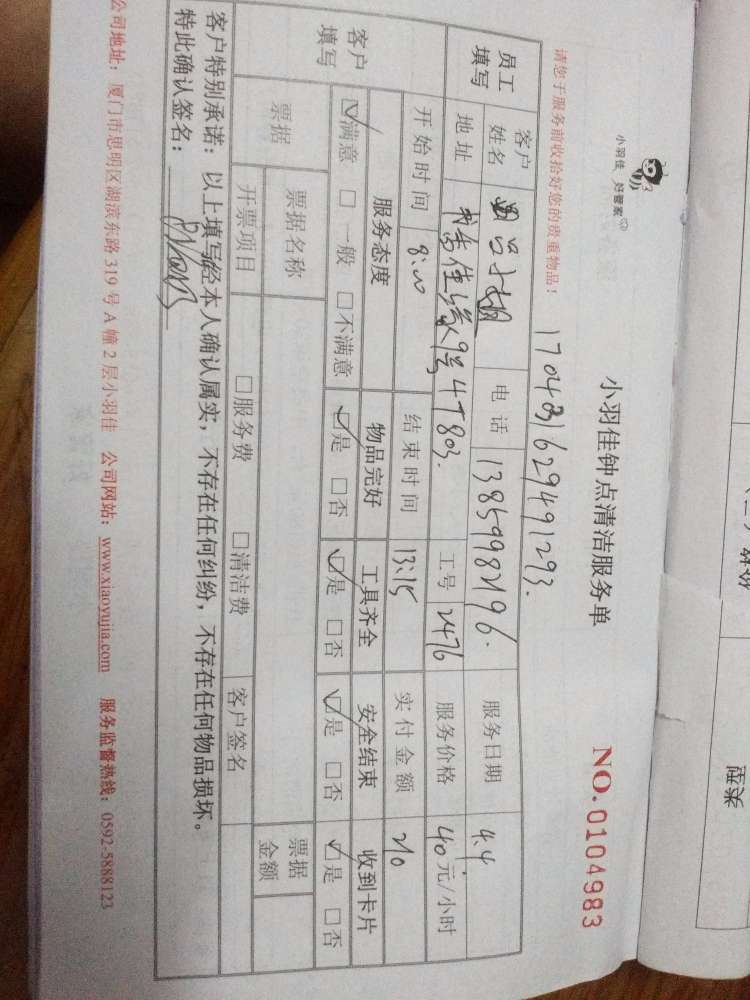 小羽佳 好管家
小羽佳钟点清洁服务单
NO.0104983
请您于服务前收拾好您的贵重物品!
1704031629491293.
员工填写 客户姓名 吕小姐 电话 服务日期 4.4
地址 佳缘 9号 4T803. 工号 2476 服务价格 40元/小时
客户填写 开始时间 8:00 结束时间 13:15 实付金额 210
服务态度 物品完好 工具齐全 安全结束 收到卡片
☑满意 □一般 □不满意 ☑是 □否 ☑是 □否 ☑是 □否 ☑是 □否
票据 票据名称 票据金额
开票项目 □服务费 □清洁费 客户签名
客户特别承诺:以上填写经本人确认属实,不存在任何纠纷,不存在任何物品损坏。
特此确认签名:
公司地址:厦门市思明区湖滨东路319号A幢2层小羽佳 公司网站:www.xiaoyujia.com 服务监督热线:0592-5888123